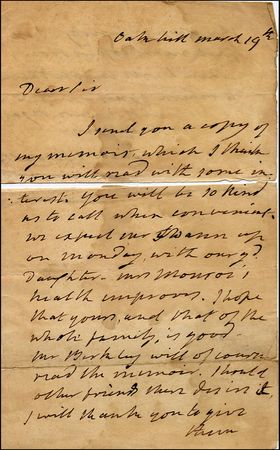 Oak hill march 19th
Dear Sir
I send you a copy of
my memoir, which I think
you will read with some in-
terest. you will be so kind
as to call when convenient.
we expect our up
on monday, with our
Daughter. Mrs Monroe's
health improves. I hope
that yours, and that of the
whole family, is good.
Mr Berkley will of course
read the memoir. Should
other friends there desire it
I will thank you to give
them